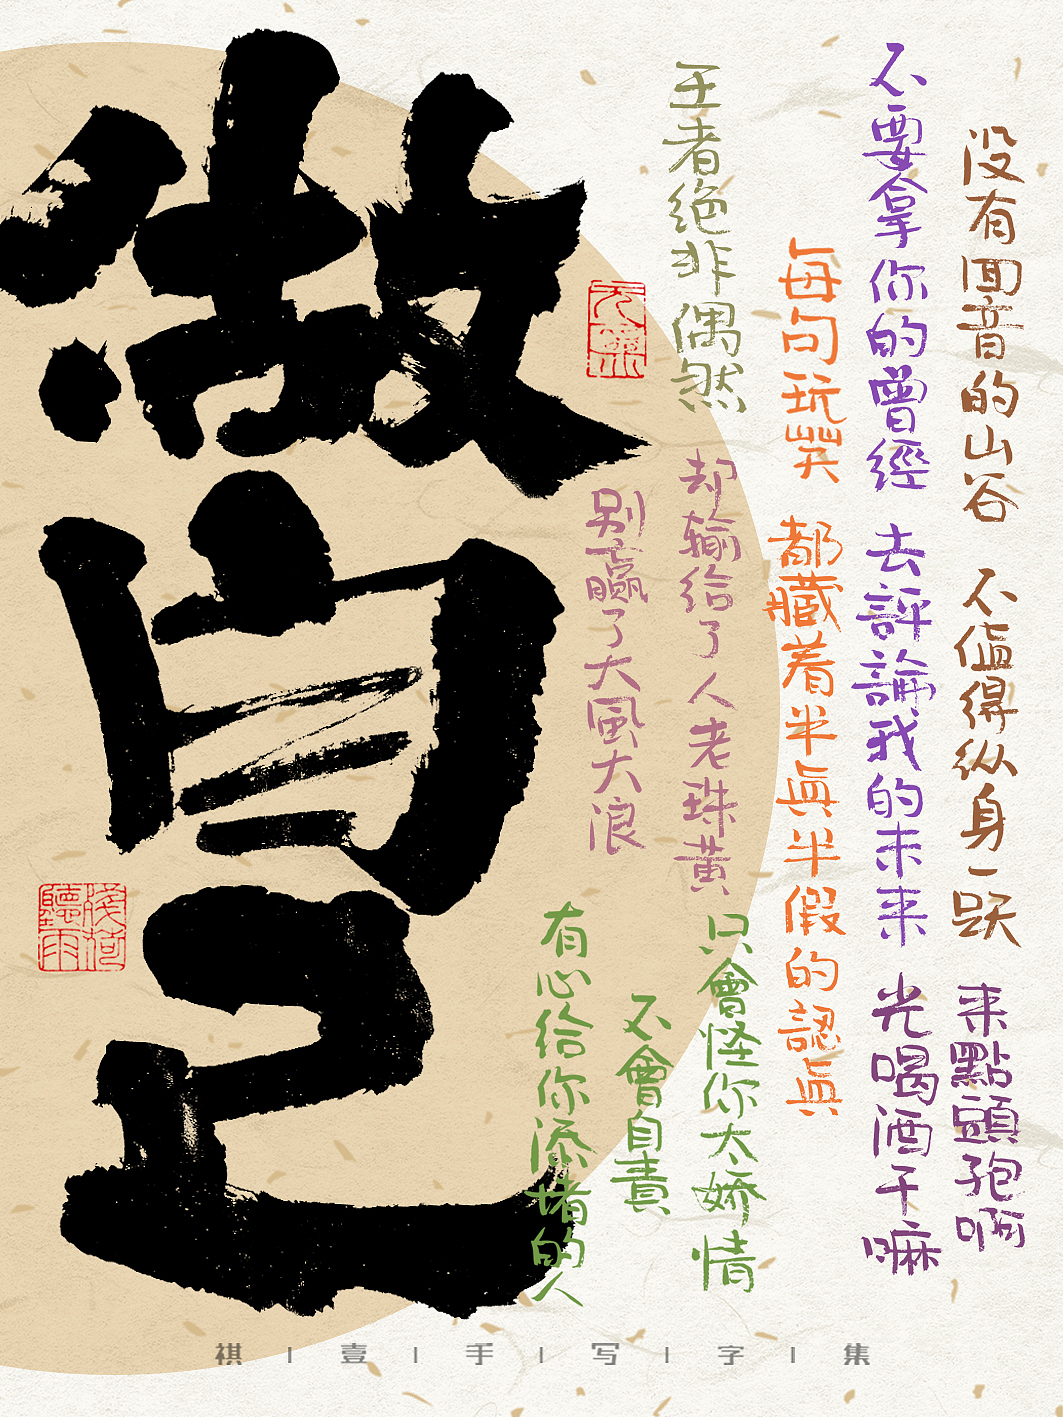 做自己
别赢了大風大浪
却输给了人老珠黄
有心给你添堵的人
不會自責
只會怪你太娇情
王者绝非偶然
每句玩笑 都藏着半眞半假的認眞
不要拿你的曾經 去評論我的未来
光喝酒干嘛
来點頭孢啊
没有回音的山谷 不值得纵身一跃
祺|壹|手|写|字|集